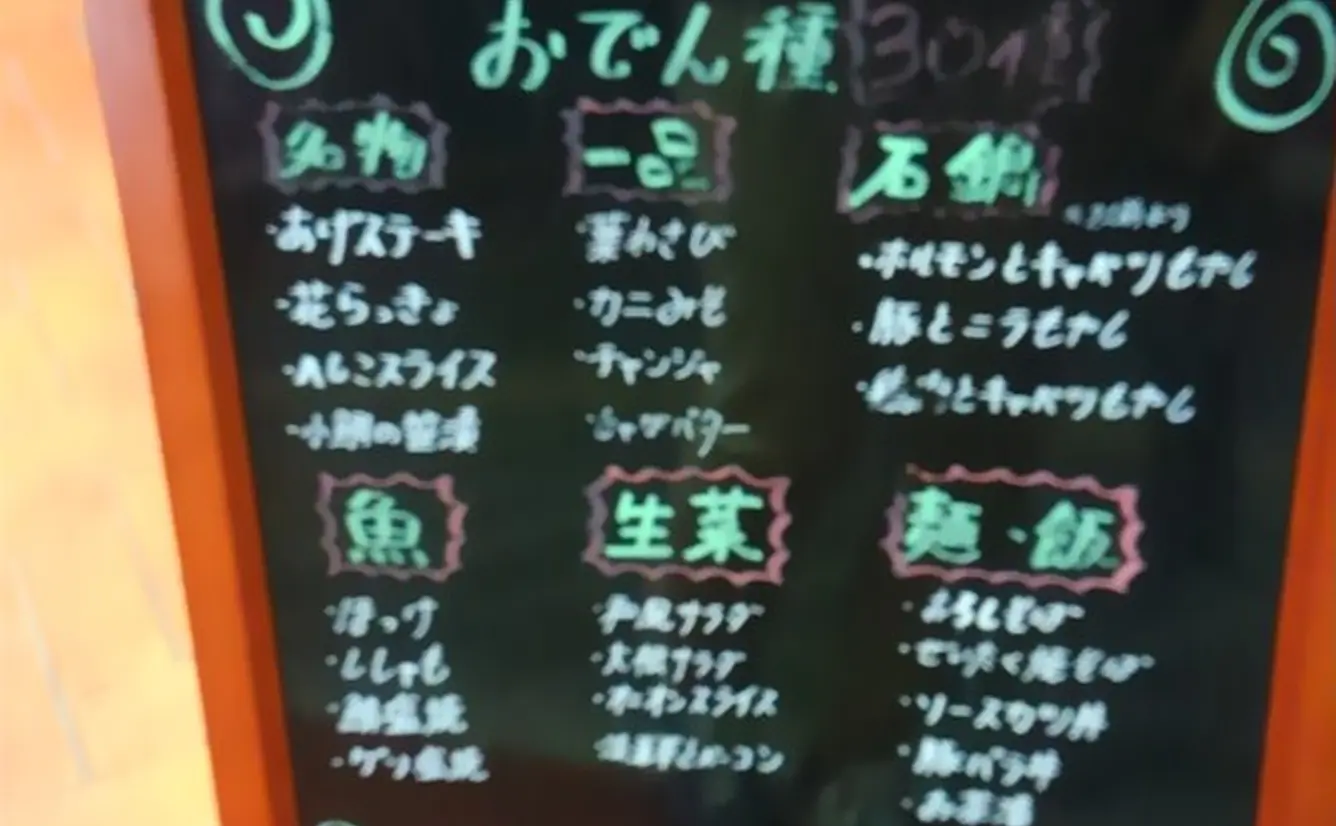 おでん種 30種
名物
・あげステーキ
・花らっきょ
・へしこスライス
・小鯛の笹漬
一品
・葉わさび
・カニみそ
・チャンジャ
・じゃがバター
石鍋
・ホルモンとキャベツもやし
・豚とニラもやし
とキャベツもやし
魚
・ほっけ
・ししゃも
・鯖塩焼
・ゲソ塩焼
生菜
・和風サラダ
・大根サラダ
・オニオンスライス
麺・飯
・おろしそば
・ぜいたく焼そば
・ソースカツ丼
・豚バラ丼
・お茶漬